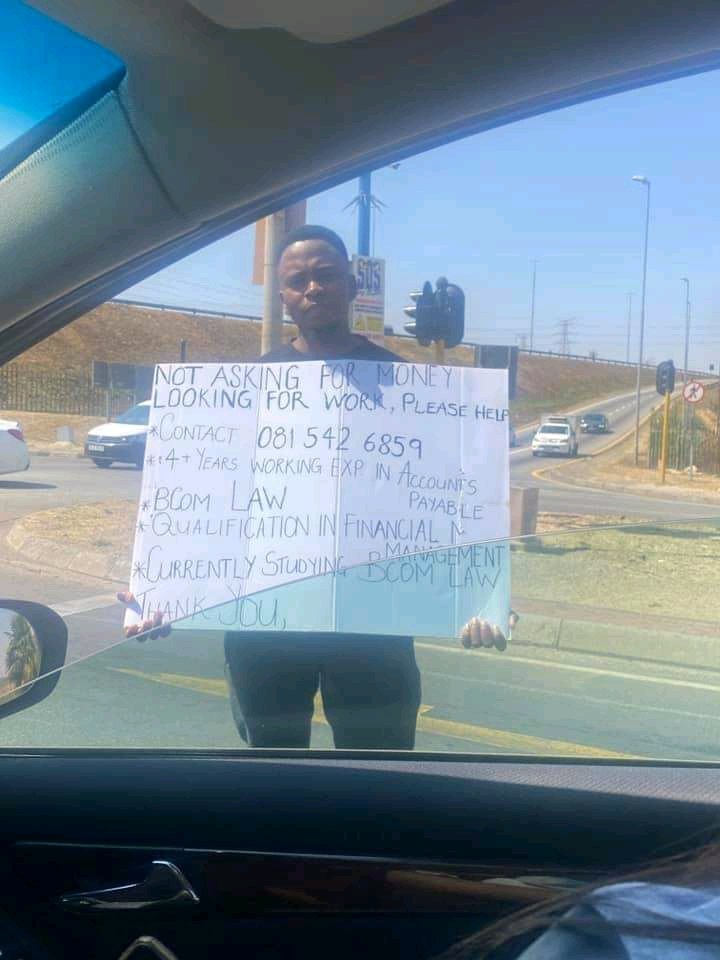 SOS
NOT ASKING FOR MONEY
LOOKING FOR WORK, PLEASE HELP
*CONTACT 081 542 6859
*4+ YEARS WORKING EXP IN ACCOUNTS
PAYABLE
*BCOM LAW
*QUALIFICATION IN FINANCIAL
MANAGEMENT
*CURRENTLY STUDYING BCOM LAW
THANK YOU,